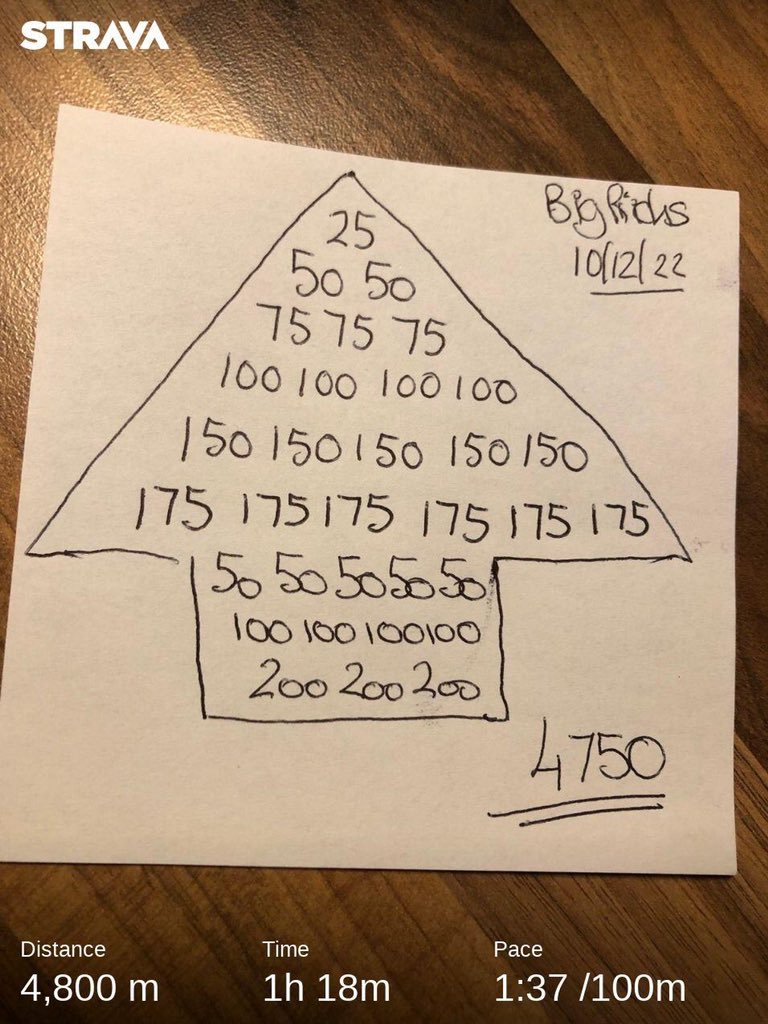 STRAVA
Big Ricks
10/12/22
25
50 50
75 75 75
100 100 100 100
150 150 150 150 150
175 175 175 175 175 175
50 50 50 50 50
100 100 100 100
200 200 200
4750
Distance Time Pace
4,800 m 1h 18m 1:37 /100m